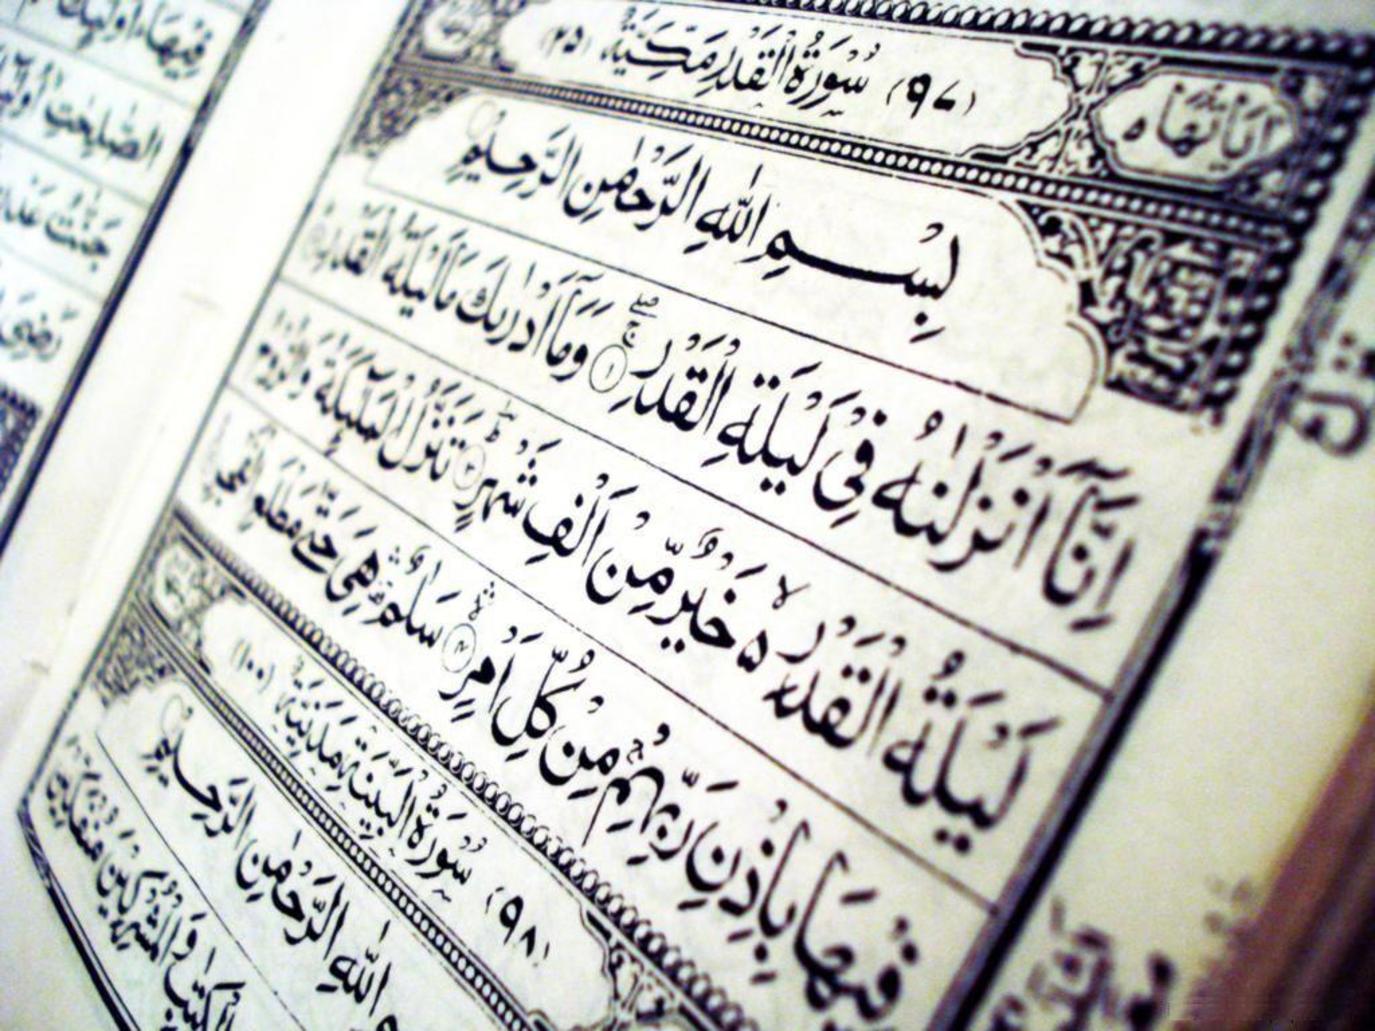 اٰيَاتُهَا ٥ (٩٧) سُوْرَةُ الْقَدْرِ مَكِّيَّةٌ (٢٥)
بِسْمِ اللّٰهِ الرَّحْمٰنِ الرَّحِيْمِ
اِنَّآ اَنْزَلْنٰهُ فِيْ لَيْلَةِ الْقَدْرِ ۝١ وَمَآ اَدْرٰىكَ مَا لَيْلَةُ الْقَدْرِ
لَيْلَةُ الْقَدْرِ ۵ خَيْرٌ مِّنْ اَلْفِ شَهْرٍ ۝٣ تَنَزَّلُ الْمَلٰٓئِكَةُ وَالرُّوْحُ
فِيْهَا بِاِذْنِ رَبِّهِمْ مِنْ كُلِّ اَمْرٍ ۝٤ سَلٰمٌ هِيَ حَتّٰى مَطْلَعِ الْفَجْرِ
(٩٨) سُوْرَةُ الْبَيِّنَةِ مَدَنِيَّةٌ (١٠٠)
اللّٰهِ الرَّحْمٰنِ الرَّحِيْمِ
الْكِتٰبِ وَالْمُشْرِكِيْنَ مُنْفَكِّيْنَ
فِيْهَا اُولٰٓئِكَ هُمْ
الصّٰلِحٰتِ اُولٰٓئِكَ
جَنّٰتُ عَدْنٍ
رَضِيَ